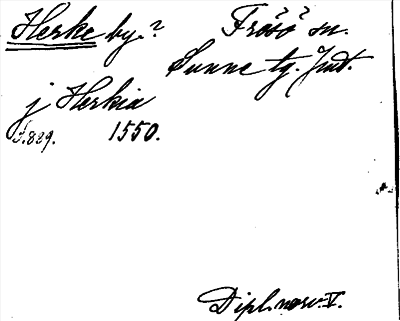 Herke by.? Frösö sn.
Sunne tg. Jmt.
j Herkia
S.829. 1550.
Dipl. norv. V.